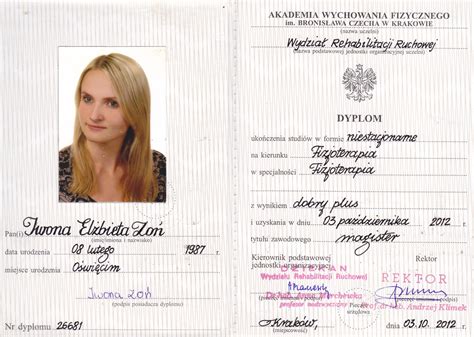 Pan(i) Iwona Elżbieta Łoń
(imię/imiona i nazwisko)
data urodzenia 08 lutego 1987 r.
miejsce urodzenia Oświęcim
Iwona Łoń
(podpis posiadacza dyplomu)
Nr dyplomu 26681
AKADEMIA WYCHOWANIA FIZYCZNEGO
im. BRONISŁAWA CZECHA W KRAKOWIE
(nazwa uczelni)
Wydział Rehabilitacji Ruchowej
(nazwa podstawowej jednostki organizacyjnej uczelni)
DYPLOM
ukończenia studiów w formie niestacjonarne
na kierunku Fizjoterapia
w specjalności Fizjoterapia
z wynikiem dobry plus
i uzyskania w dniu 03 października 2012 r.
tytułu zawodowego magister
Kierownik podstawowej
jednostki organizacyjnej
DZIEKAN
Wydziału Rehabilitacji Ruchowej
profesor nadzwyczajny
REKTOR
Prof. dr hab. Andrzej Klimek
Kraków, dnia 03.10.2012 r.